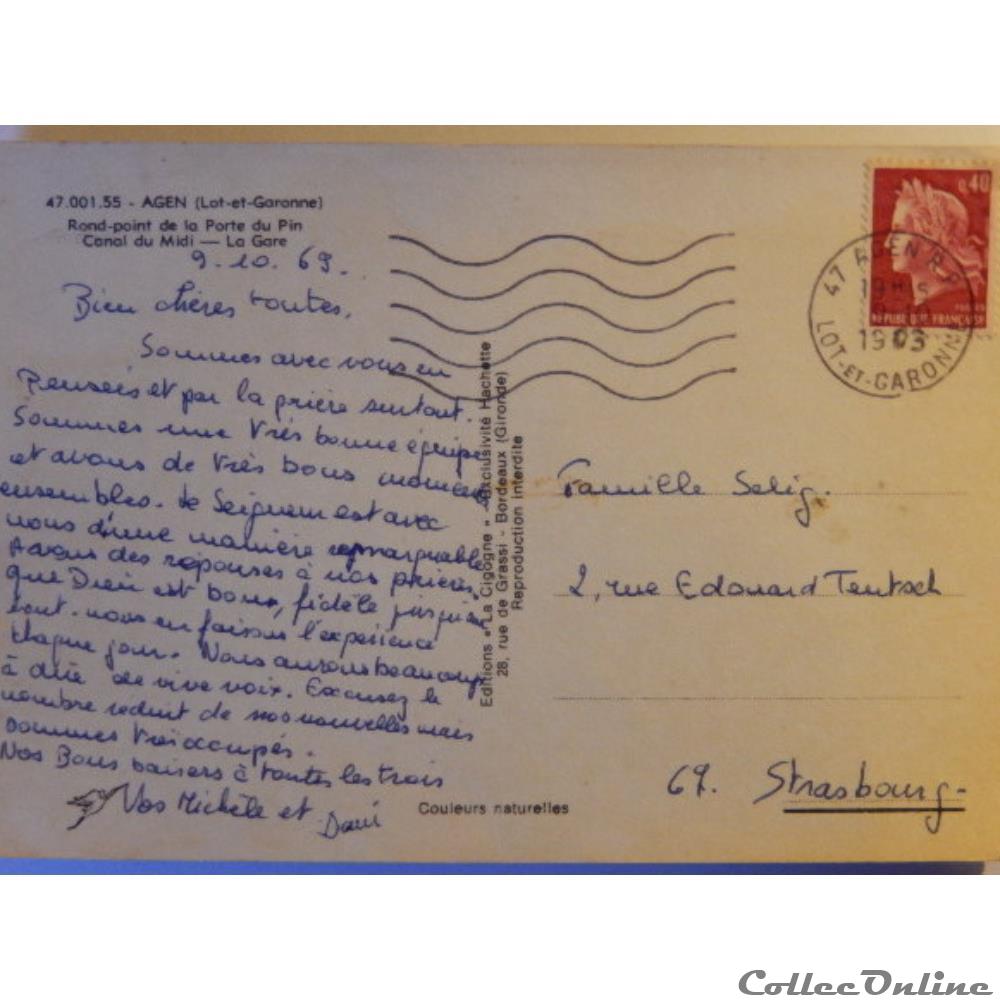 47.001.55 - AGEN (Lot-et-Garonne)
Rond-point de la Porte du Pin
Canal du Midi — La Gare
9.10.69.
Bien chères toutes,
Sommes avec vous en
Pensées et par la prière surtout.
Sommes une très bonne équipe
et avons de très bons moments
ensembles. Le Seigneur est avec
nous d'une manière remarquable
Avons des réponses à nos prières,
que Dieu est bons, fidèle jusqu'au
bout. nous en faisons l'expérience
chaque jour. Nous aurons beaucoup
à dire de vive voix. Excusez le
nombre réduit de nos nouvelles mais
sommes très occupés.
Nos Bons baisers à toutes les trois
Vos Michèle et
Editions « La Cigogne » - Exclusivité Hachette
28, rue de Grassi - Bordeaux (Gironde)
Reproduction interdite
Couleurs naturelles
0,40
REPUBLIQUE FRANÇAISE
47 AGEN R.P.
19H
LOT-ET-GARONNE
Famille Selig.
2, rue Edouard Teutsch
67. Strasbourg-
CollecOnline